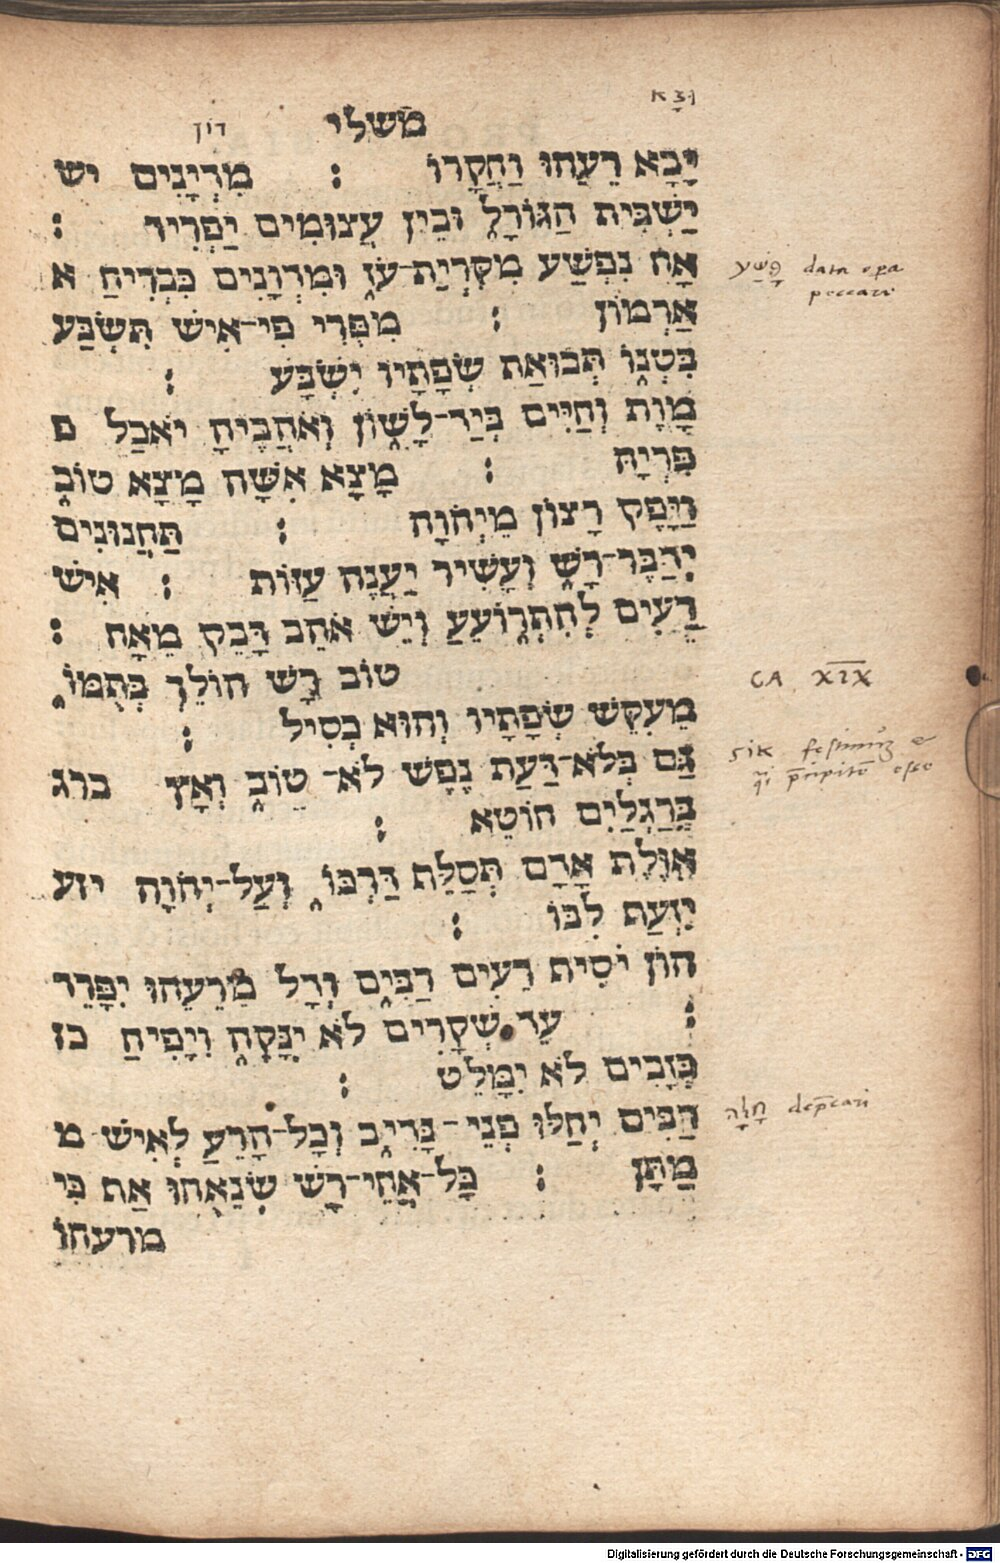 משלי
דון
יָבָא רֵעֵהוּ וַחֲקָרוֹ : מִדְיָנִים יש
יַשְׁבִּית הַגּוֹרָל וּבֵין עֲצוּמִים יַפְרִיד :
אָח נִפְשַׁע מִקִּרְיַת־עֹז וּמִדְוָנִים כִּבְרִיחַ א
אַרְמוֹן : מִפְּרִי פִי־אִישׁ תִּשְׂבַּע
בִּטְנוֹ תְּבוּאַת שְׂפָתָיו יִשְׂבָּע :
מָוֶת וְחַיִּים בְּיַד־לָשׁוֹן וְאֹהֲבֶיהָ יֹאכַל פ
פִּרְיָהּ : מָצָא אִשָּׁה מָצָא טוֹב
וַיָּפֶק רָצוֹן מֵיְהֹוָה : תַּחֲנוּנִים
יְדַבֶּר־רָשׁ וְעָשִׁיר יַעֲנֶה עַזּוֹת : אִישׁ
רֵעִים לְהִתְרוֹעֵעַ וְיֵשׁ אֹהֵב דָּבֵק מֵאָח :
טוֹב רָשׁ הוֹלֵךְ בְּתֻמּוֹ
מֵעִקֵּשׁ שְׂפָתָיו וְהוּא כְסִיל :
גַּם בְּלֹא־דַעַת נֶפֶשׁ לֹא־טוֹב וְאָץ ברג
בְּרַגְלַיִם חוֹטֵא :
אִוֶּלֶת אָדָם תְּסַלֵּף דַּרְכּוֹ וְעַל־יְהֹוָה יזע
יִזְעַף לִבּוֹ :
הוֹן יֹסִיף רֵעִים רַבִּים וְדָל מֵרֵעֵהוּ יִפָּרֵד
: עֵד שְׁקָרִים לֹא יִנָּקֶה וְיָפִיחַ כז
כְּזָבִים לֹא יִמָּלֵט :
רַבִּים יְחַלּוּ פְנֵי־נָדִיב וְכָל־הָרֵעַ לְאִישׁ מ
מַתָּן : כָּל־אֲחֵי־רָשׁ שְׂנֵאֻהוּ אַף כִּי
מרעהו
פָּשַׁע data opa
peccare
CA XIX
חָלָה depcari
Digitalisierung gefördert durch die Deutsche Forschungsgemeinschaft - DFG